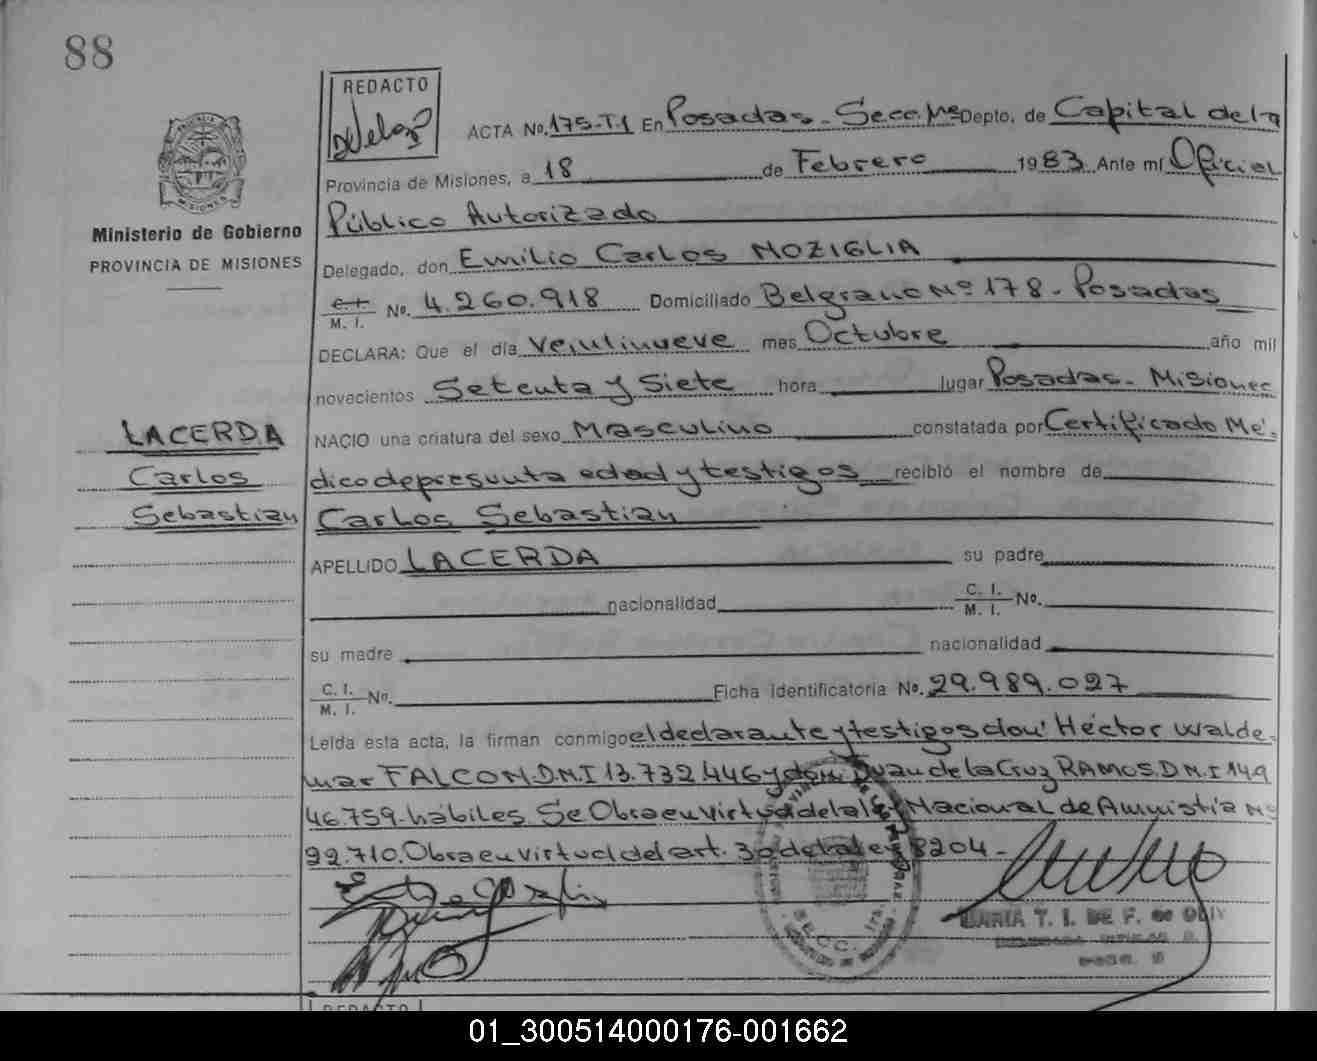 88
REDACTO
ACTA No. 175-T1 En Posadas - Secc. 1ra Depto. de Capital de la
Provincia de Misiones, a 18 de Febrero 1983 Ante mí Oficial
Público Autorizado
Ministerio de Gobierno
PROVINCIA DE MISIONES
Delegado, don Emilio Carlos MOZIGLIA
C. I.
M. I. No. 4.260.918 Domiciliado Belgrano Nº 178 - Posadas
DECLARA: Que el día Veintinueve mes Octubre año mil
novecientos Setenta y Siete hora lugar Posadas - Misiones
NACIO una criatura del sexo Masculino constatada por Certificado Mé-
dico de presunta edad y testigos recibió el nombre de
LACERDA
Carlos
Sebastian
Carlos Sebastian
APELLIDO LACERDA su padre
nacionalidad C. I.
M. I. No.
su madre nacionalidad
C. I.
M. I. No. Ficha Identificatoria No. 29.989.027
Leída esta acta, la firman conmigo el declarante y testigos don: Héctor Walde-
mar FALCON. D.N.I 13.732.446 y don: Juan de la Cruz RAMOS. D.N.I 149
46.759 hábiles. Se Obra en virtud de la ley Nacional de Amnistia Nº
22.710. Obra en virtud del art. 30 de la ley 8204 -
MARIA T. I. DE F. de OLIV
SECC. 1ra
REDACTO
01_300514000176-001662